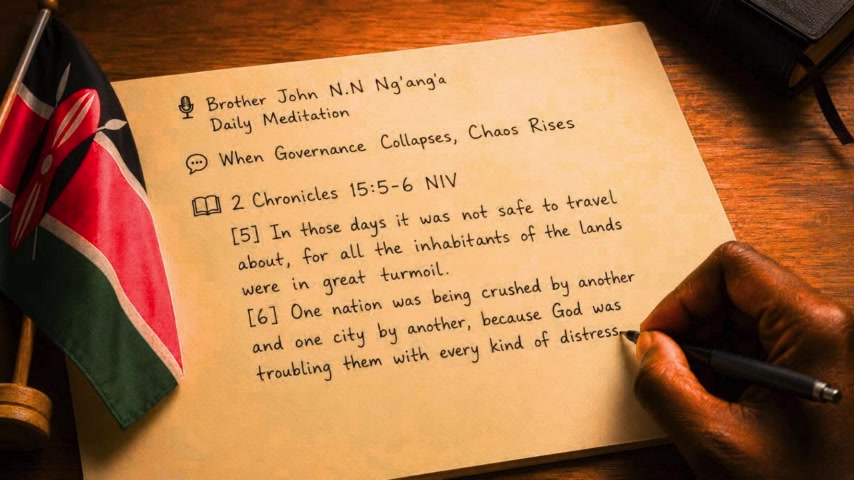 Brother John N.N Ng'ang'a
Daily Meditation
When Governance Collapses, Chaos Rises
2 Chronicles 15:5-6 NIV
[5] In those days it was not safe to travel
about, for all the inhabitants of the lands
were in great turmoil.
[6] One nation was being crushed by another
and one city by another, because God was
troubling them with every kind of distress.